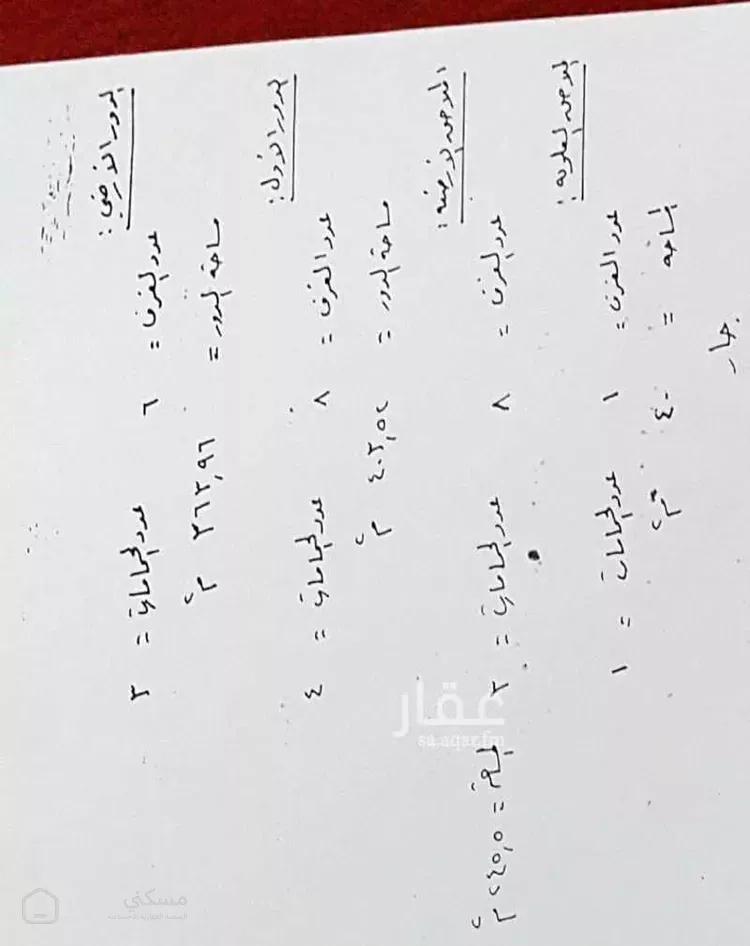 الدور الأرضي:
عدد الغرف = ٦ عدد الحمامات = ٣
مساحة الدور = ٣٦٣,٩٦ م٢
الدور الأول:
عدد الغرف = ٨ عدد الحمامات = ٤
مساحة الدور = ٤٠٢,٥٢ م٢
الملاحق الأرضية:
عدد الغرف = ٨ عدد الحمامات = ٣ المساحة = ٢٤٥,٥ م٢
الملاحق العلوية:
عدد الغرف = ١ عدد الحمامات = ١
المساحة = ٤٠ م٢
عقار
sa.aqar.fm
مسكني